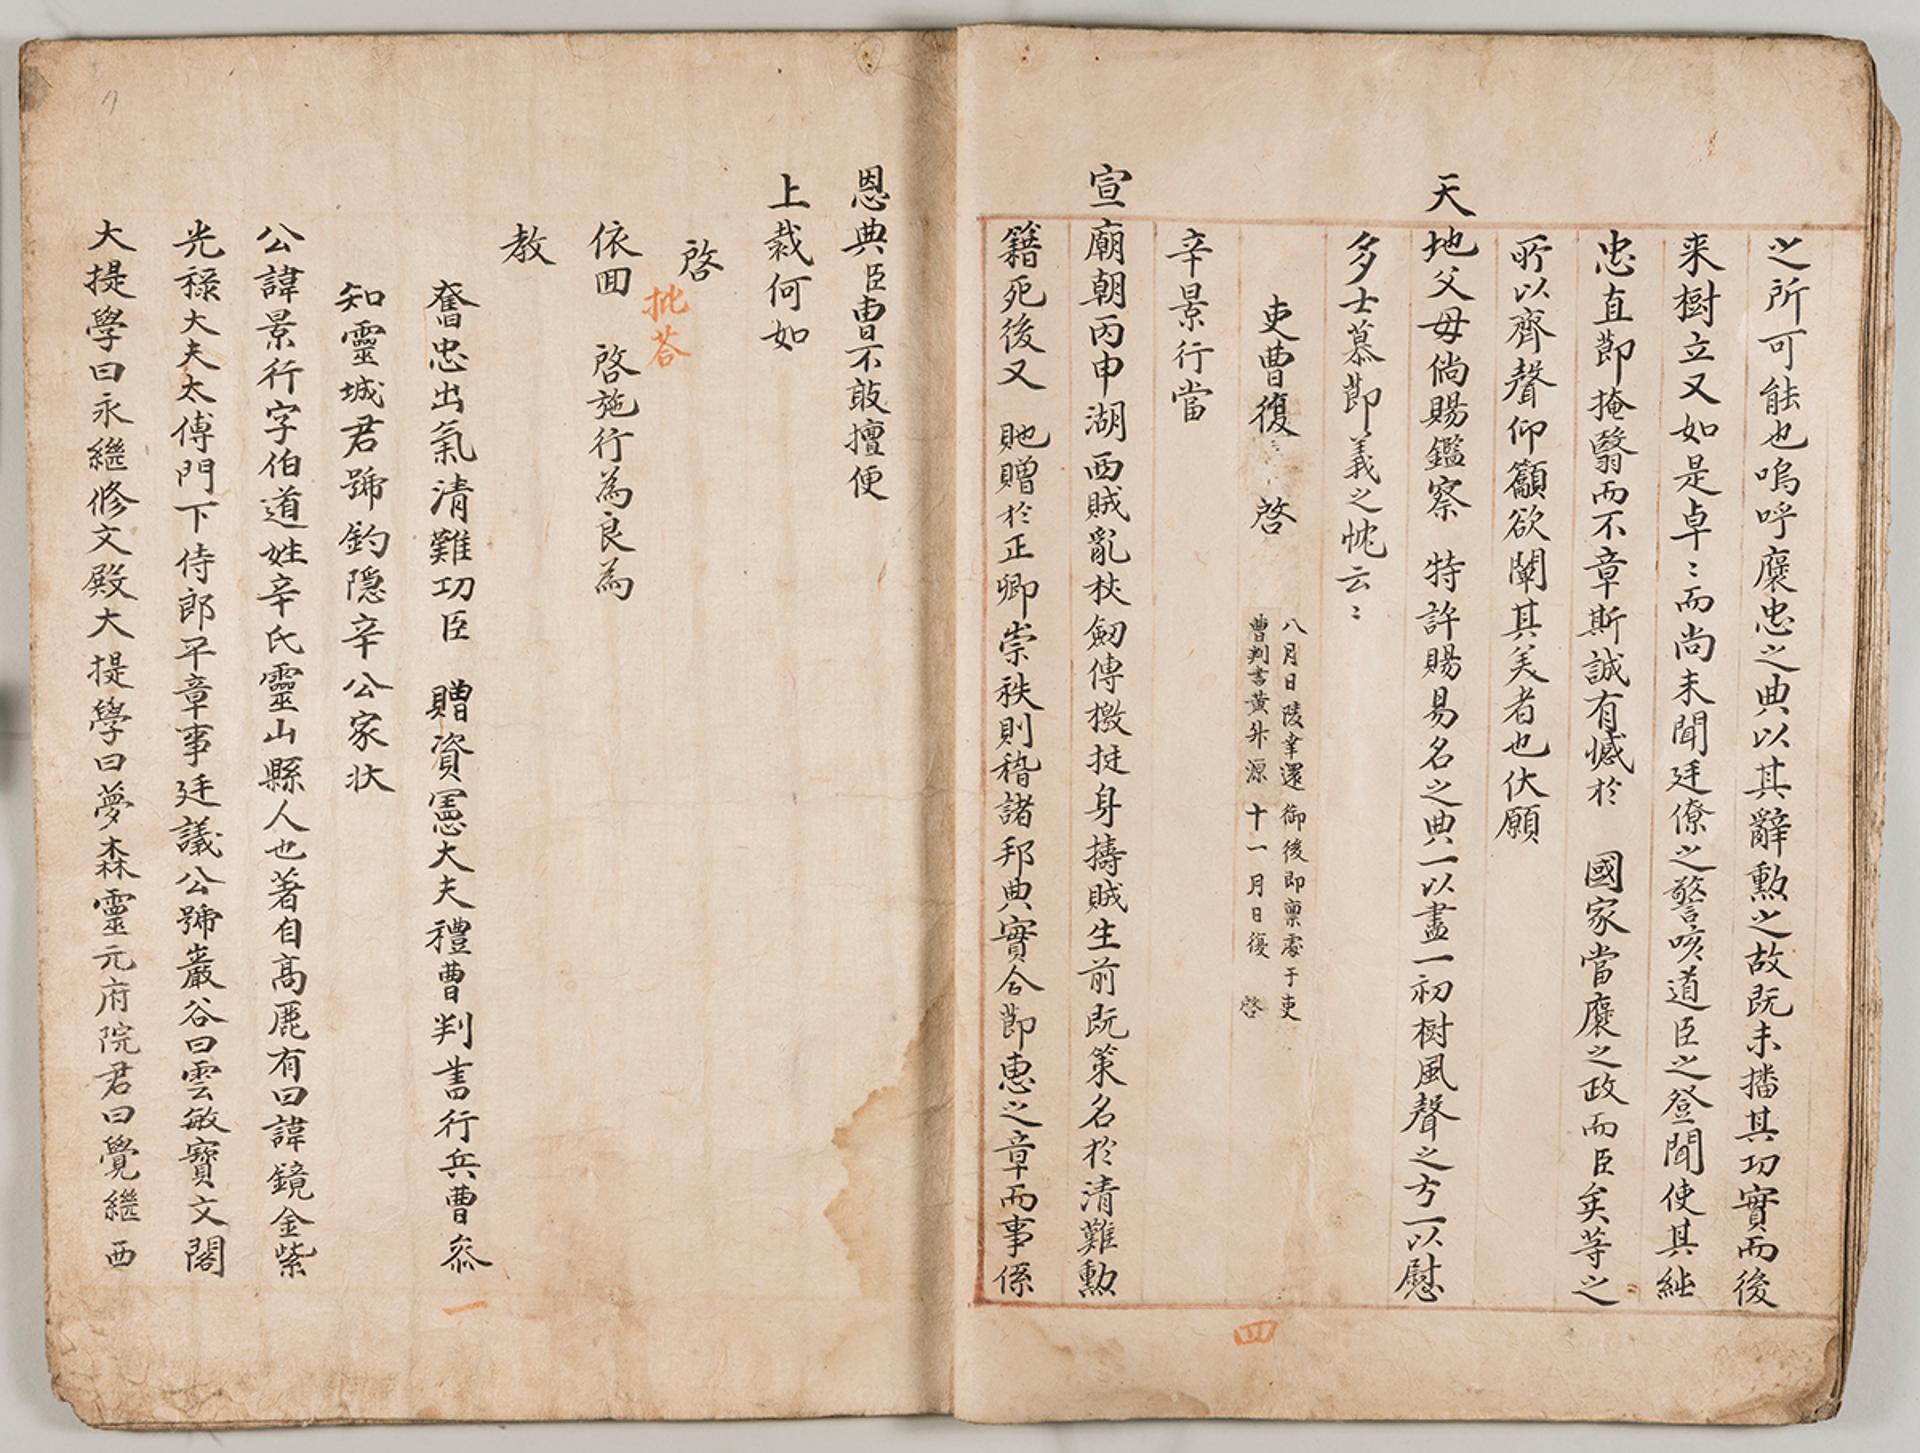 之所可能也嗚呼褒忠之典以其辭勲之故既未播其功實而後
来樹立又如是卓〻而尚未聞廷僚之警咳道臣之登聞使其
忠直節掩翳而不章斯誠有憾於 國家當褒之政而臣矣等之
所以齊聲仰籲欲闡其美者也伏願
天地父母倘賜鑑察 特許賜易名之典一以盡一初樹風聲之方一以慰
多士慕節義之忱云〻
吏曹復 啓
八月日陵幸還御後即稟處于吏
曹判書黄昇源十一月日復 啓
辛景行當
宣廟朝丙申湖西賊亂杖劒傳檄挺身擣賊生前既策名於清難勲
籍死後又 貤贈於正卿崇秩則稽諸邦典實合節惠之章而事係
恩典臣曹不敢擅便
上裁何如
啓
批答
依回 啓施行為良為
教
奮忠出氣清難功臣 贈資憲大夫禮曹判書行兵曹叅
知靈城君號釣隠辛公家状
公諱景行字伯道姓辛氏靈山縣人也著自髙麗有曰諱鏡金紫
光祿大夫太傅門下侍郎平章事廷議公號巖谷曰雲敏寶文閣
大提學曰永繼修文殿大提學曰夢森靈元府院君曰覺繼西
一
四